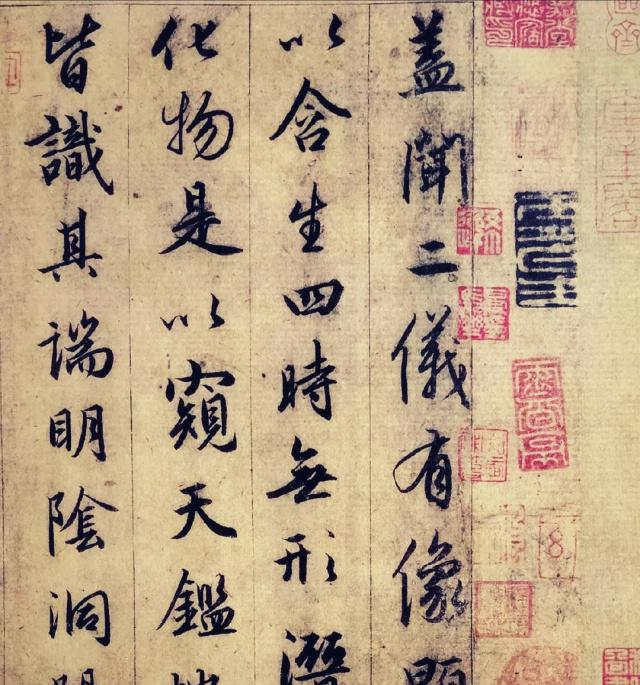 蓋聞二儀有像顯
以含生四時無形潛
化物是以窺天鑑地
皆識其端明陰洞